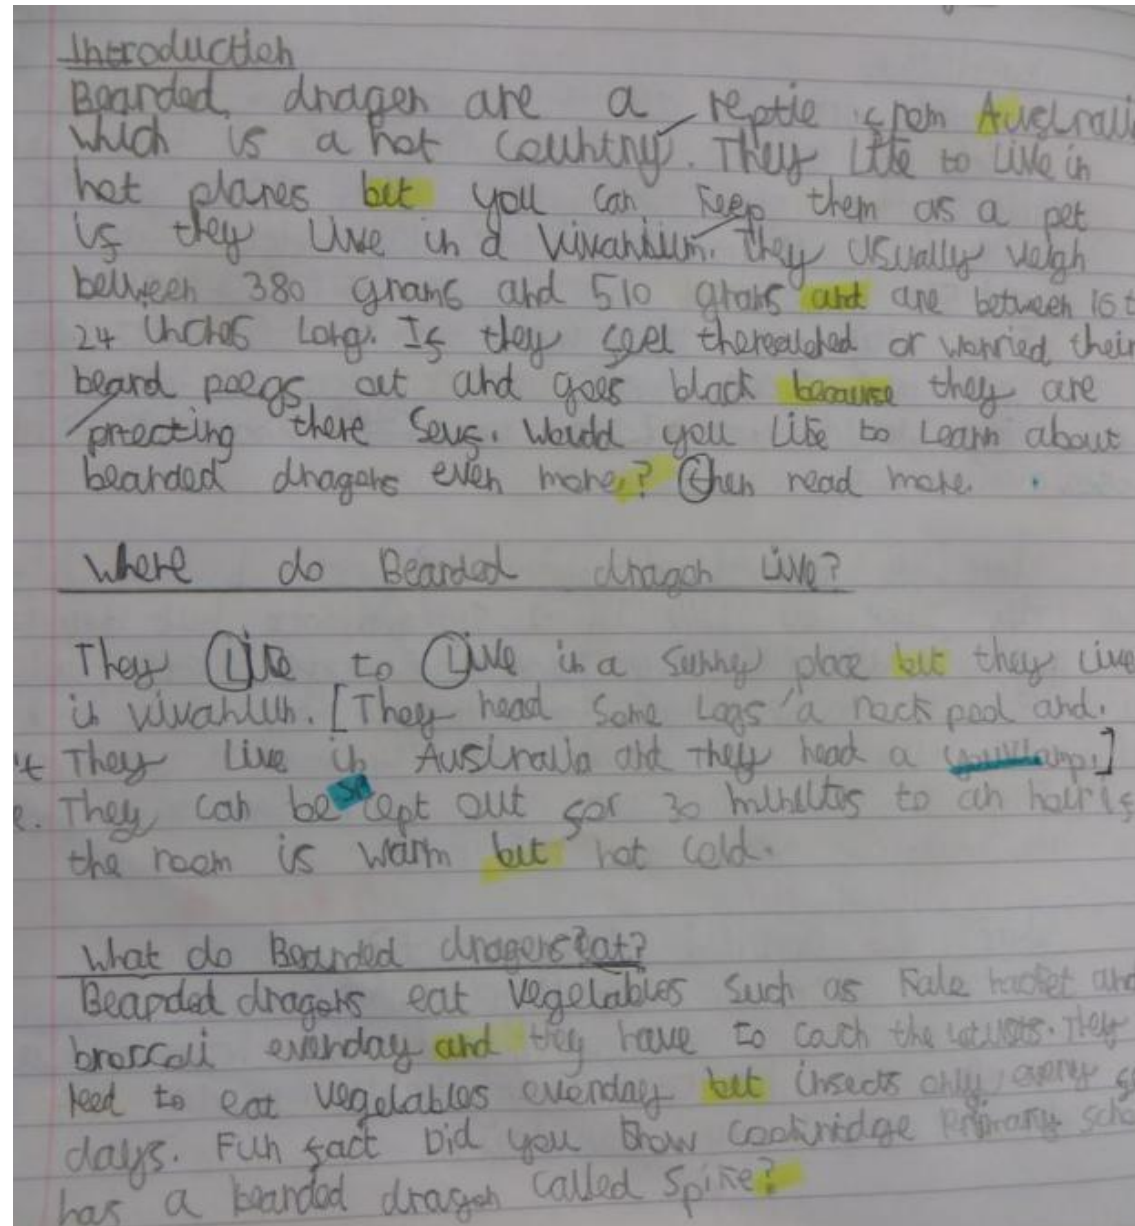 Introduction
Bearded dragon are a reptie from Australi
which is a hot country. They like to live in
hot planes but you can keep them as a pet
if they live in a vivantium. They usually veigh
between 380 grams and 510 grams and are between 16 t
24 inches long. If they feel therealded or worried their
beard poegs out and goes black because they are
protecting there selfs. Would you like to learn about
bearded dragons even more,? then read more.
Where do Bearded dragon live?
They Like to Live in a sunny place but they live
in vivantium. [They head some logs a rock pool and.
They live in Australia and they head a lamp.]
They can be cept out for 30 minutes to an hour if
the room is warm but not cold.
What do Bearded dragons eat?
Bearded dragons eat vegetables such as kale rocket and
broccoli everday and they have to cach the locusts. They
need to eat vegetables everday but insects only every
days. Fun fact Did you know cookridge primary scho
has a bearded dragon called Spike?